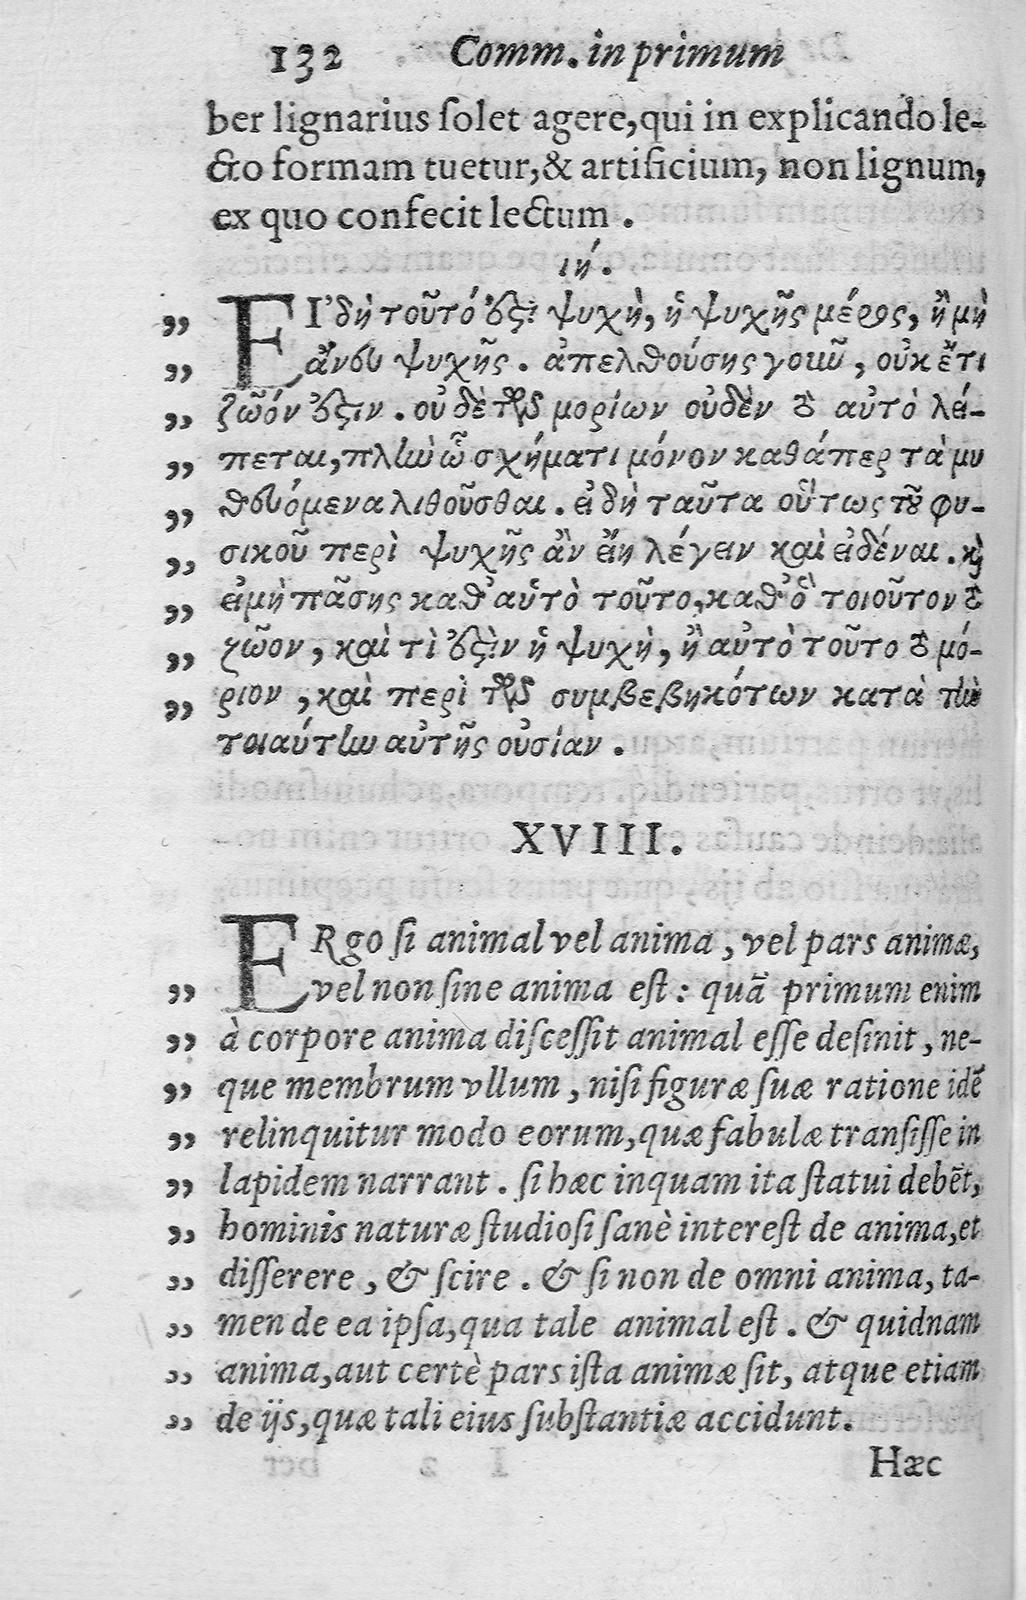 132 Comm. in primum
ber lignarius ſolet agere, qui in explicando le-
cto formam tuetur, & artificium, non lignum,
ex quo confecit lectum .
ιή.
ΕΙ᾿ δὴ τοῦτό ἐϛι ψυχὴ, ἢ ψυχῆς μέρος, ἢ μὴ
„ ἄνευ ψυχῆς . ἀπελθούσης γοιῶ , οὐκ ἔτι
„ ζῶόν ἐϛιν . οὐδὲ τῶν μορίων οὐδὲν τὸ αὐτὸ λεί-
„ πεται, πλὼ ὦ σχήματι μόνον καθάπερ τὰ μυ
„ θευόμενα λιθοῦσθαι . εἰ δὴ ταῦτα οὕτως τοῦ φυ-
„ σικοῦ περὶ ψυχῆς ἂν εἴη λέγειν καὶ εἰδέναι . κὶ
„ εἰ μὴ πάσης καθ᾿ αὑτὸ τοῦτο, καθ᾿ ὃ τοιοῦτον τὸ
„ ζῶον , καὶ τὶ ἐϛὶν ἡ ψυχὴ, ἢ αὐτὸ τοῦτο τὸ μό-
„ ριον , καὶ περὶ τῶν συμβεβηκότων κατὰ τὼ
τοιαύτὼ αὐτῆς οὐσίαν .
XVIII.
ERgo ſi animal vel anima , vel pars animæ,
„ vel non ſine anima eſt : quã primum enim
„ à corpore anima diſceſſit animal eſſe deſinit , ne-
„ que membrum vllum , niſi figuræ ſuæ ratione idẽ
„ relinquitur modo eorum, quæ fabulæ tranſiſſe in
„ lapidem narrant . ſi hæc inquam ita ſtatui debẽt,
„ hominis naturæ ſtudioſi ſanè intereſt de anima, et
„ differere , & ſcire . & ſi non de omni anima, ta-
„ men de ea ipſa, qua tale animal eſt . & quidnam
„ anima, aut certè pars iſta animæ ſit, atque etiam
„ de ijs, quæ tali eius ſubſtantiæ accidunt.
Hæc